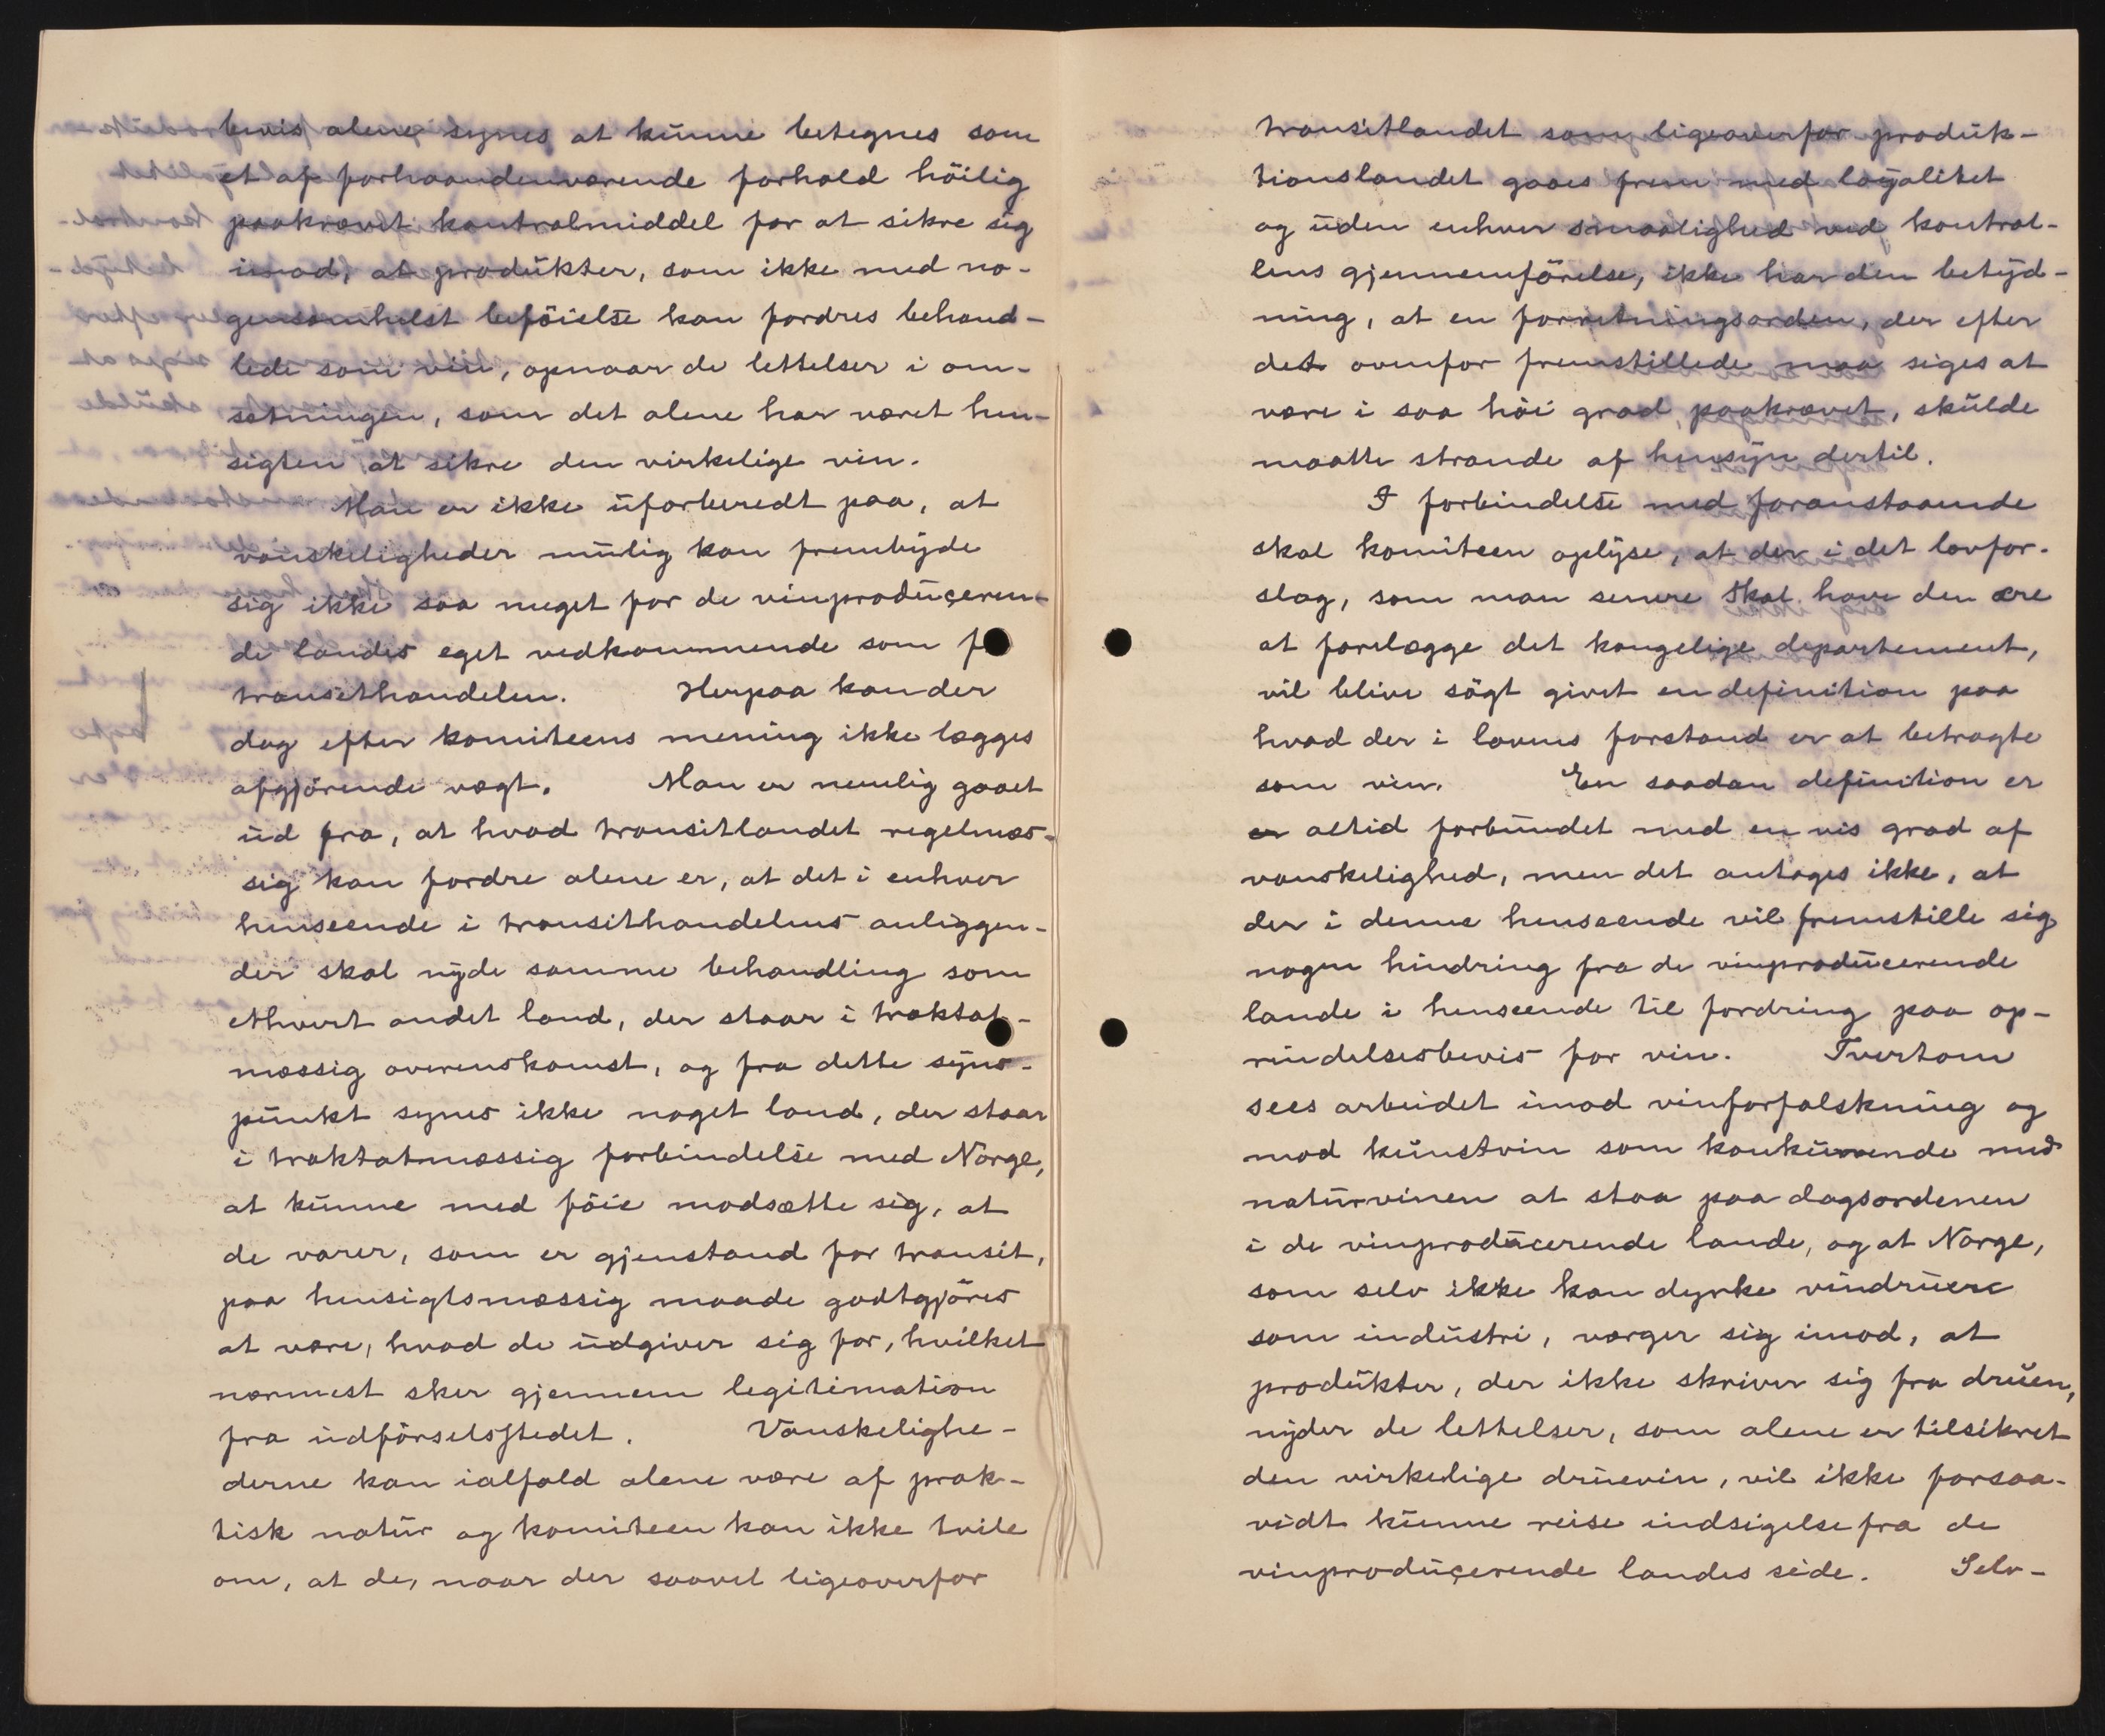 bevis alene synes at kunne betegnes som
et af forhaandenværende forhold höilig
paakrævet kontrolmiddel for at sikre sig
imod, at produkter, som ikke med no-
gensomhelst beföielse kan fordres behand-
lede som vin, opnaar de lettelser i om-
sætningen, som det alene har været hen-
sigten at sikre den virkelige vin.
Man er ikke uforberedt paa, at
vanskeligheder mulig kan frembyde
sig ikke saa meget for de vinproduceren-
de landes eget vedkommende som f
transithandelen. Herpaa kan der
dog efter komiteens mening ikke lægges
afgjörende vægt. Man er nemlig gaaet
ud fra, at hvad transitlandet regelmæs-
sig kan fordre alene er, at det i enhver
henseende i transithandelens anliggen-
der skal nyde samme behandling som
ethvert andet land, der staar i traktat-
mæssig overenskomst, og fra dette syns-
punkt synes ikke noget land, der staar
i traktatmæssig forbindelse med Norge,
at kunne med föie modsætte sig, at
de varer, som er gjenstand for transit,
paa hensigtsmæssig maade godtgjöres
at være, hvad de udgiver sig for, hvilket
nærmest sker gjennem legitimation
fra udförselsstedet. Vanskelighe-
derne kan ialfald alene være af prak-
tisk natur og komiteen kan ikke tvile
om, at de, naar der saavel ligeoverfor
transitlandet som ligeoverfor produk-
tionslandet gaaes frem med loyalitet
og uden enhver smaalighed ved kontrol-
lens gjennemförelse, ikke har den betyd-
ning, at en forretningsorden, der efter
det ovenfor fremstillede maa siges at
være i saa höi grad paakrævet, skulde
maatte strande af hensyn dertil.
I forbindelse med foranstaaende
skal komiteen oplyse, at der i det lovfor-
slag, som man senere skal have den ære
at forelægge det kongelige departement,
vil blive sögt givet en definition paa
hvad der i lovens forstand er at betragte
som vin. En saadan definition er
er altid forbundet med en vis grad af
vanskelighed, men det antages ikke, at
der i denne henseende vil fremstille sig
nogen hindring fra de vinproducerende
lande i henseende til fordring paa op-
rindelsesbevis for vin. Tvertom
sees arbeidet imod vinforfalskning og
mod kunstvin som konkurrende med
naturvinen at staa paa dagsordenen
i de vinproducerende lande, og at Norge,
som selv ikke kan dyrke vindruere
som industri, værger sig imod, at
produkter, der ikke skriver sig fra druen,
nyder de lettelser, som alene er tilsikret
den virkelige druevin, vil ikke forsaa-
vidt kunne reise indsigelse fra de
vinproducerende landes side. Selv-